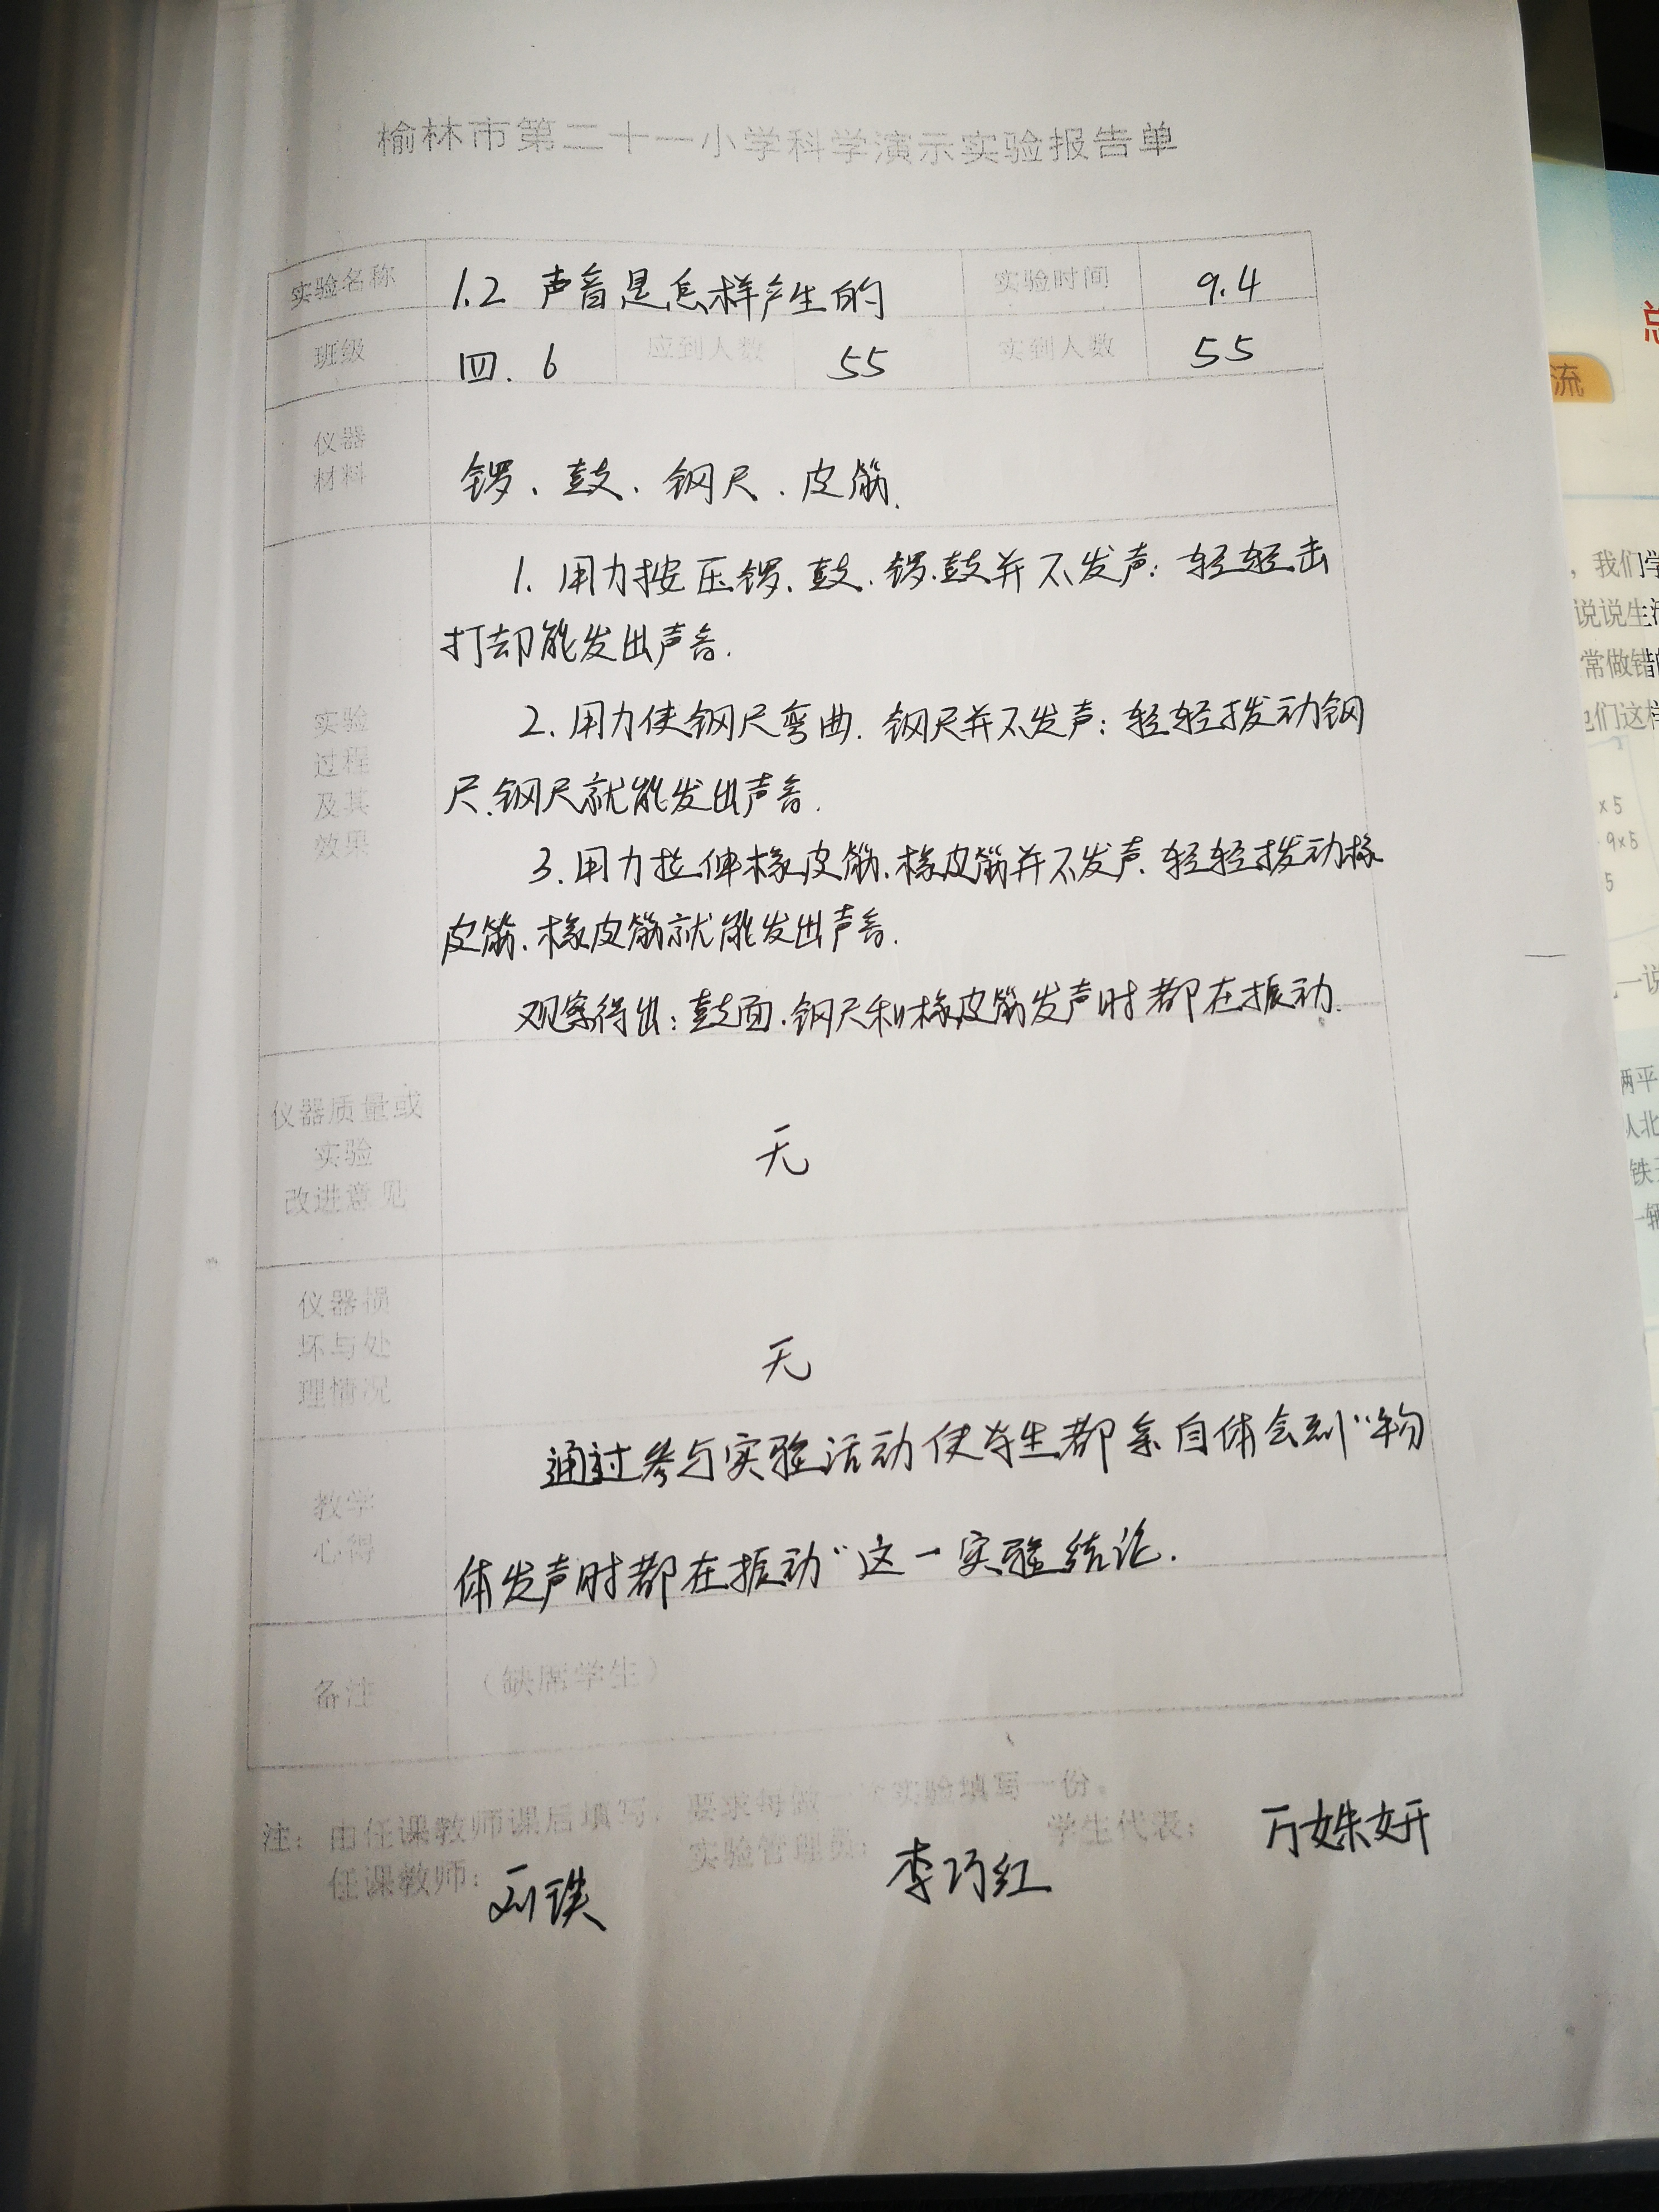 榆林市第二十一小学科学演示实验报告单
实验名称 1.2 声音是怎样产生的 实验时间 9.4
班级 四.6 应到人数 55 实到人数 55
仪器
材料
锣、鼓、钢尺、皮筋.
实验
过程
及其
效果
1.用力按压锣、鼓、锣、鼓并不发声;轻轻击
打却能发出声音.
2.用力使钢尺弯曲.钢尺并不发声;轻轻拨动钢
尺、钢尺就能发出声音.
3.用力拉伸橡皮筋、橡皮筋并不发声.轻轻拨动橡
皮筋、橡皮筋就能发出声音.
观察得出:鼓面、钢尺和橡皮筋发声时都在振动.
仪器质量或
实验
改进意见
无
仪器损
坏与处
理情况
无
教学
心得
通过参与实验活动使学生都亲自体会到“物
体发声时都在振动”这一实验结论.
备注 (缺席学生)
注: 由任课教师课后填写,要求每做一次实验填写一份。
任课教师: 实验管理员: 李巧红 学生代表: 万姝妍
总
流
,我们学
说说生活
常做错
他们这样
×5
9×5
5
一说
两平
从北
铁
一辆